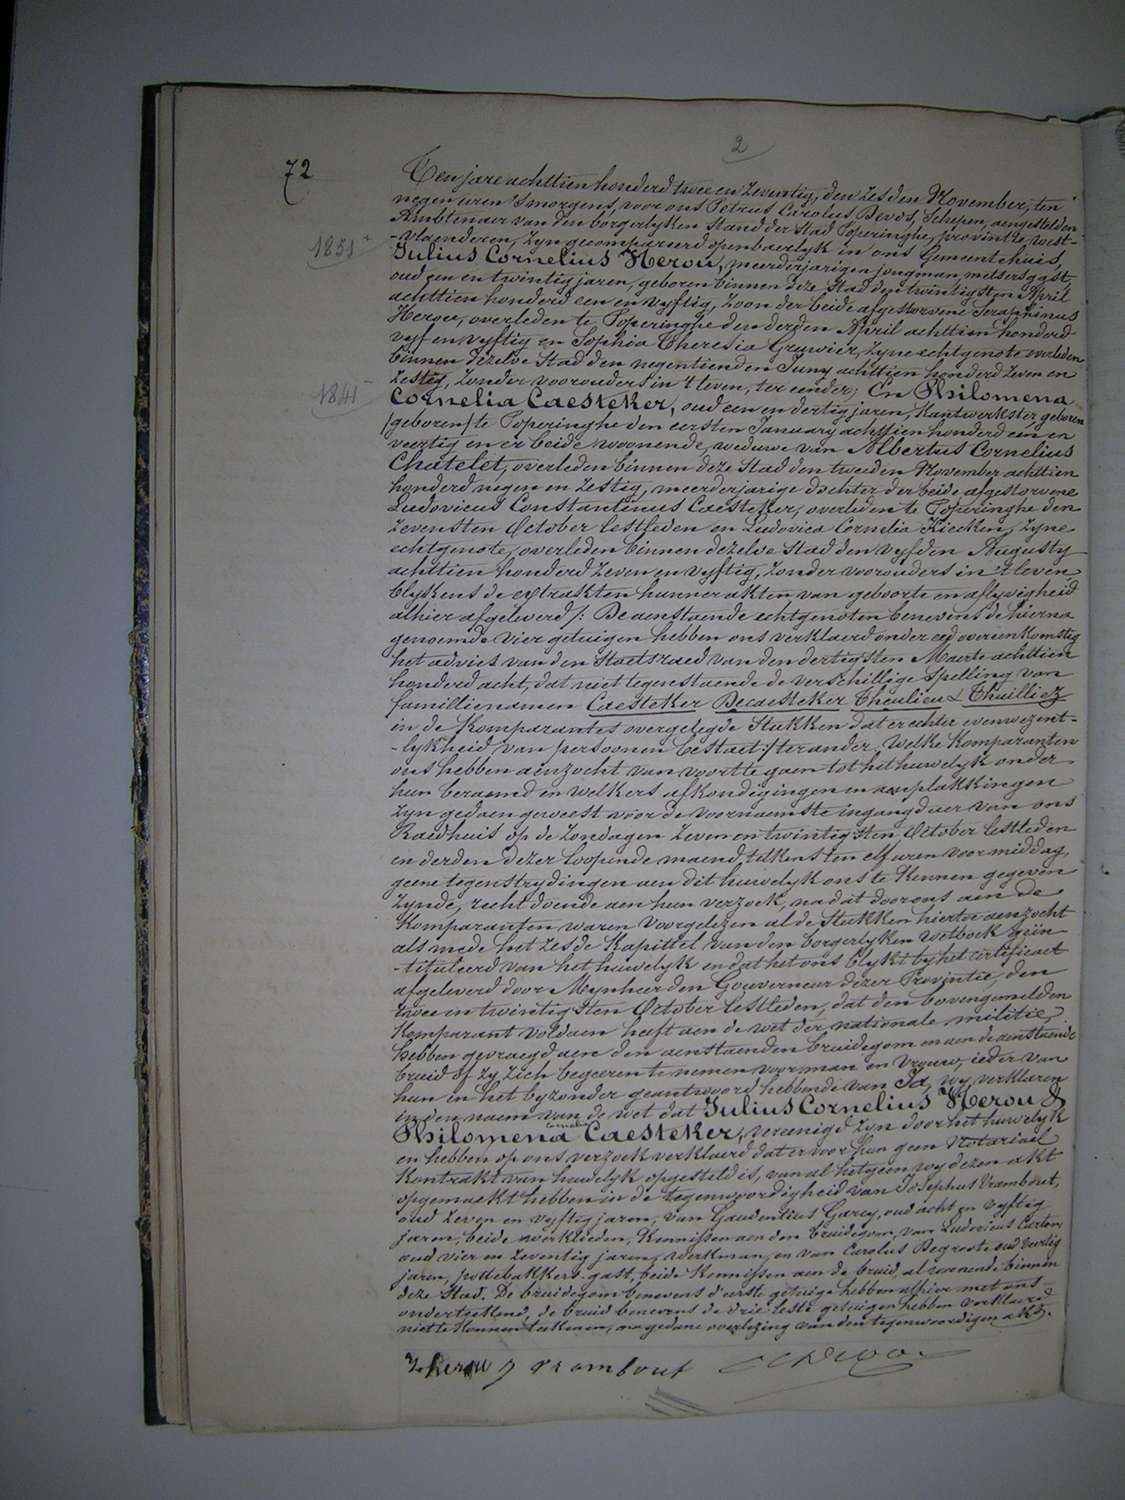 2
72
Ten jare achttien honderd twee en zeventig, den zesden November, ten
negen uren 's morgens, voor ons Petrus Carolus Devos, Schepen, aengestelden
Ambtenaer van den borgerlyken Stand der Stad Poperinghe, provintie West-
1851
-vlaenderen, zyn gecompareerd openbaerlyk in ons Gemeentehuis,
Julius Cornelius Herou, meerderjarigen jongman, metsersgast,
oud een en twintig jaren, geboren binnen deze Stad den twintigsten April
achttien honderd een en vyftig, zoon der beide afgestorvene Seraphinus
Herou, overleden te Poperinghe den derden April achttien honderd
vyf en vyftig en Sophia Theresia Gruwier, zyne echtgenote overleden
binnen dezelve Stad den negentienden Juny achttien honderd zeven en
zestig, zonder voorouders in 't leven, ter eender; En Philomena
1841
Cornelia Caesteker, oud een en dertig jaren, Kantwerkster geboren
(geboren) te Poperinghe den eersten January achttien honderd een en
veertig en er beide woonende, weduwe van Albertus Cornelius
Chatelet, overleden binnen deze Stad den tweeden November achttien
honderd negen en zestig, meerderjarige dochter der beide afgestorvene
Ludovicus Constantinus Caesteker, overleden te Poperinghe den
zevensten October lestleden en Ludovica Cornelia Kiecken, zyne
echtgenote, overleden binnen dezelve Stad den vyfden Augusty
achttien honderd zeven en vyftig, zonder voorouders in 't leven
blykens de extrakten hunner akten van geboorte en aflyvigheid
alhier afgeleverd /: De aenstaende echtgenoten benevens de hierna
genoemde vier getuigen hebben ons verklaerd onder eed overeenkomstig
het advies van den Staetsraed van den dertigsten Maerte achttien
honderd acht, dat niet tegenstaende de verschillige spelling van
famillienamen Caesteker Decaesteker Theulieu & Thuilliez
in de Komparantes overgelegde Stukken dat er echter evenwezent-
-lykheid van persoonen bestaet :/ ter ander, Welke Komparanten
ons hebben aenzocht van voort te gaen tot het huwelyk onder
hun beraemd en welkers afkondigingen en aenplakkingen
zyn gedaen geweest voor de voornaemste ingangduer van ons
Raedhuis op de zondagen zeven en twintigsten October lestleden
en derden dezer loopende maend, telkens ten elf uren voormiddag,
geene tegenstrydingen aen dit huwelyk ons te Kennen gegeven
zynde, recht doende aen hun verzoek, na dat door ons aen de
Komparanten waren voorgelezen al de Stukken hiertoe aenzocht
als mede het zesde Kapittel van den borgerlyken Wetboek geïn-
-tituleerd van het huwelyk en dat het ons blykt by het certificaet
afgeleverd door Mynheer den Gouverneur dezer Provintie, den
twee en twintigsten October lestleden, dat den bovengemelden
Komparant voldaen heeft aen de wet der nationale militie,
hebben gevraegd aen den aenstaenden bruidegom en aen de aenstaende
bruid of zy zich begeeren te nemen voor man en vrouw, ieder van
hun in het byzonder geantwoord hebbende van Ja, wy verklaren
in den naem van de wet dat Julius Cornelius Herou &
Cornelia
Philomena Caesteker, vereenigd zyn door het huwelyk
en hebben op ons verzoek verklaerd dat er voor hun geen Notariael
Kontrakt van huwelyk opgesteld is, van al hetgeen wy dezen akt
opgemaekt hebben in de tegenwoordigheid van Josephus Vrambout,
oud zeven en vyftig jaren, van Gaudentius Garcy, oud acht en vyftig
jaren, beide werklieden, Kennissen aen den bruidegom, van Ludovicus Carton,
oud vier en zeventig jaren, werkman, en van Carolus Degroote oud veertig
jaren, pottebakkers-gast, beide Kennissen aen de bruid, al woonende binnen
deze Stad. De bruidegom benevens d'eerste getuige hebben alhier met ons
onderteekend, de bruid benevens de drie leste getuigen hebben verklaerd
niet te Konnen teekenen, na gedane overlezing van den tegenwoordigen akt.
herou j vrambout CDevos